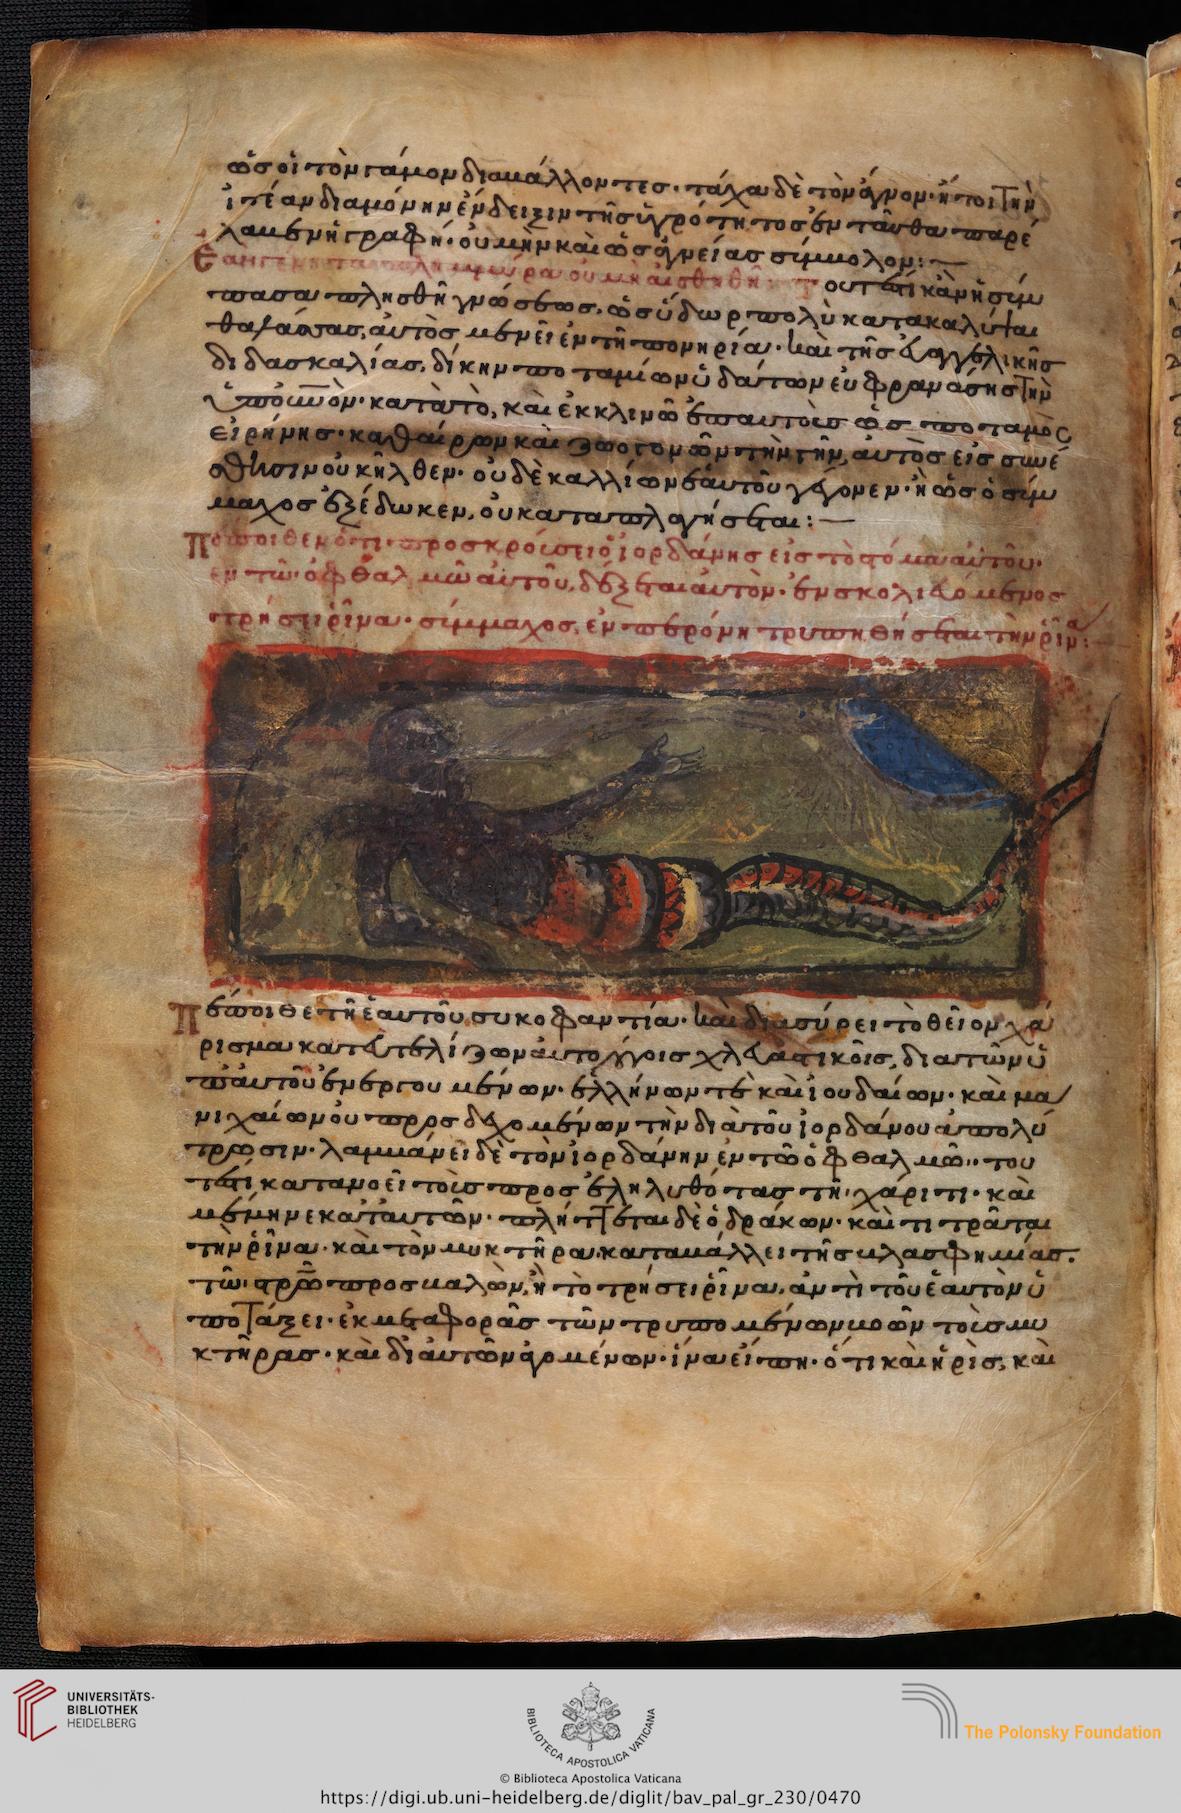 ὡς οἱ τὸν γάμον διαβάλλοντες· τάχα δὲ τὸν ἄγνον· ἤτοι τὴν
ἰτέαν διαμόνην ἔνδειξιν τῆς ὑγρότητος ἐνταῦθα παρέ
λαβεν ἡ γραφή· οὐ μὴν καὶ ὡς ἁγνείας σύμβολον:
Ἐὰν γένηται πλημμύρα οὐ μὴ αἰσθηθῆ: τουτέστι κἂν ἡ σύμ
πασα πλησθῆ γνώσεως, ὡς ὕδωρ πολὺ κατακαλύψαι
θαλάσσας, αὐτὸς μενεῖ ἐν τῆ πονηρία· καὶ τῆς εὐαγγελικῆς
διδασκαλίας, δίκην ποταμίων ὑδάτων εὐφρανάσης τὴν
κατὰ τὸ, καὶ ἐκκλινῶ ἐπ αὐτοὺς ὡς ποταμὸς
εἰρήνης· καθαίρων καὶ ζωογονῶν τὴν γῆν, αὐτὸς εἰς συνέ
σθησιν οὐκ ἦλθεν· οὐδὲ καλλίων ἑαυτοῦ γέγονεν· ἢ ὡς ὁ σύμ
μαχος ἐξέδωκεν, οὐ καταπλαγήσεται:
Πέποιθεν ὅτι προσκρούσει ὁ ἰορδάνης εἰς τὸ στόμα αὐτοῦ·
ἐν τῶ ὀφθαλμῶ αὐτοῦ, δέξεται αὐτὸν· ἐνσκολιευόμενος
τρήσει ῥῖνα· σύμμαχος, ἐν περόνη τρυπηθήσεται τὴν ῥῖνα:
Πέποιθε τῆ ἑαυτοῦ συκοφαντία· καὶ διασύρει τὸ θεῖον χά
ρισμα κατευτελίζων αὐτὸ λόγοις χλευαστικοῖς, διὰ τῶν ὑ
π αὐτοῦ ἐνεργουμένων· ἑλλήνων τε καὶ ἰουδαίων· καὶ μα
νιχαίων οὐ προσδεχομένων τὴν διὰ τοῦ ἰορδάνου ἀπολύ
τρωσιν· λαμβάνει δὲ τὸν ἰορδάνην ἐν τῶ ὀφθαλμῶ· του
τέστι κατανοεῖ τοὺς προσεληλυθότας τῆ χάριτι· καὶ
μέμηνε κατ αὐτῶν· πλήττεται δὲ ὁ δράκων· καὶ τιτρᾶται
τὴν ῥῖνα· καὶ τὸν μυκτῆρα καταβάλλει τῆς βλασφημίας·
τῶ στρῶ προσβαλὼν, ἢ τὸ τρήσει ῥῖνα, ἀντὶ τοῦ ἑαυτὸν ὑ
ποτάξει· ἐκ μεταφορᾶς τῶν τρυπομένων βοῶν τοὺς μυ
κτῆρας· καὶ δι αὐτῶν ἀγομένων· ἵνα εἴπη· ὅτι καὶ ἡ ῥὶς, καὶ
UNIVERSITÄTS-
BIBLIOTHEK
HEIDELBERG
BIBLIOTECA APOSTOLICA VATICANA
The Polonsky Foundation
© Biblioteca Apostolica Vaticana
https://digi.ub.uni-heidelberg.de/diglit/bav_pal_gr_230/0470